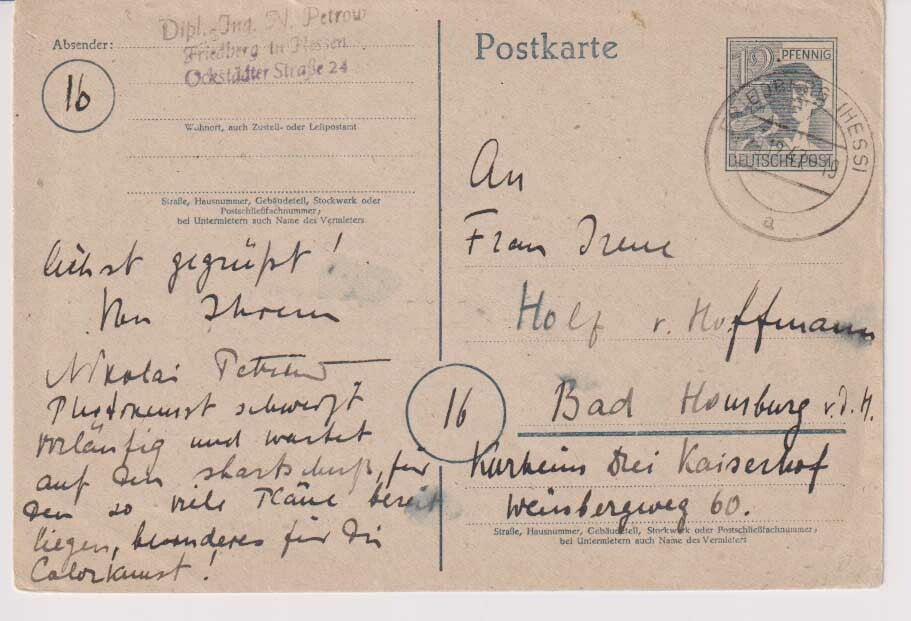 Absender:
Dipl.-Ing. N. Petrow
Friedberg in Hessen
Ockstädter Straße 24
16
Wohnort, auch Zustell- oder Leitpostamt
Straße, Hausnummer, Gebäudeteil, Stockwerk oder
Postschließfachnummer;
bei Untermietern auch Name des Vermieters
lichst gegrüßt!
Von Ihrem
Nikolai Petrow
Photokunst schweigt
vorläufig und wartet
auf den Startschuß, für
den so viele Pläne bereit
liegen, besonderes für die
Colorkunst!
Postkarte
12 PFENNIG
DEUTSCHE POST
(HESS)
47 19
a
An
Frau Irene
Holf v. Hoffmann
16
Bad Homburg v.d.H.
Kurheim Drei Kaiserhof
Weinbergweg 60.
Straße, Hausnummer, Gebäudeteil, Stockwerk oder Postschließfachnummer;
bei Untermietern auch Name des Vermieters